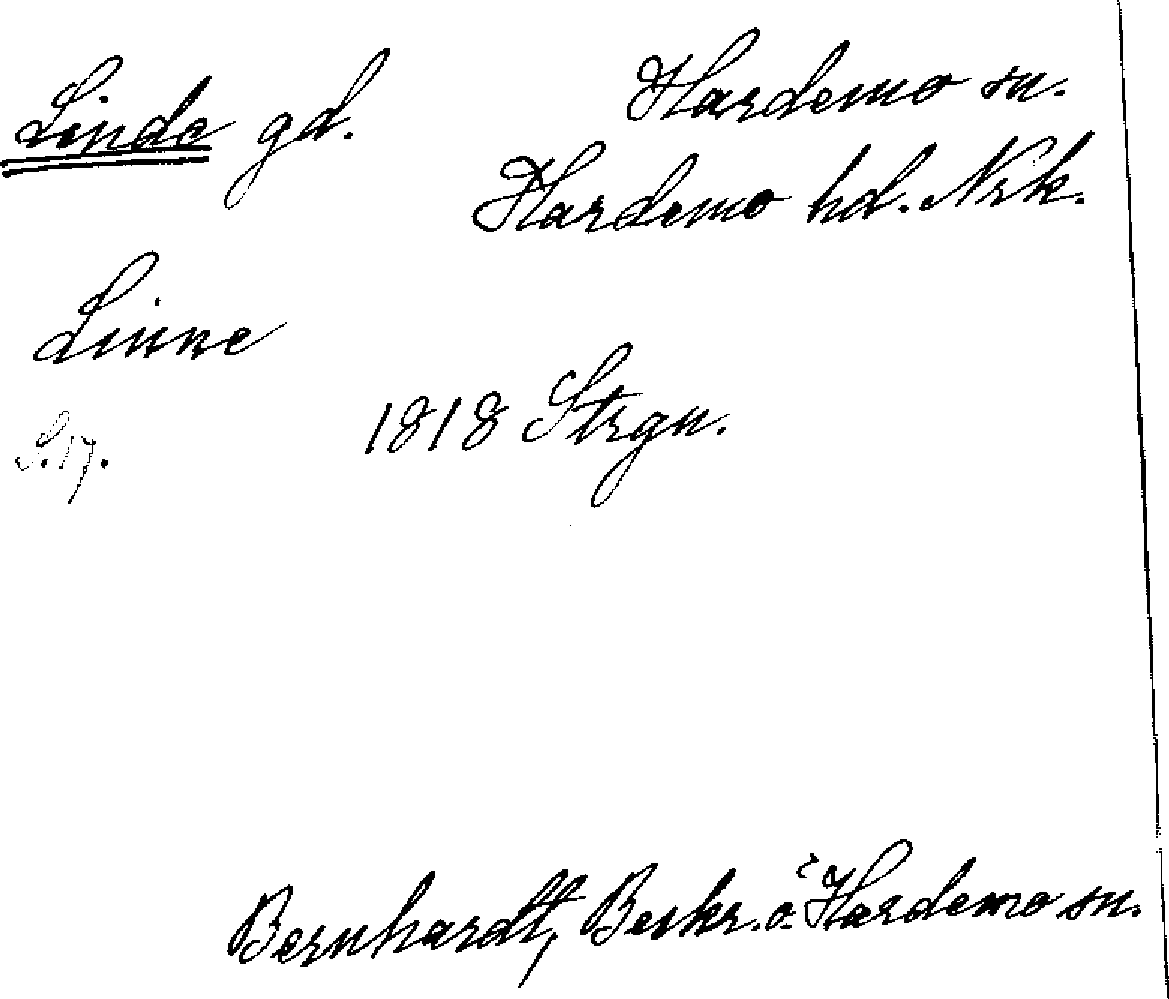 Linde gd.
Hardemo sn.
Hardemo hd. Nrk.
Linne
S. 17.
1818 Strgn.
Bernhardt, Beskr. ö. Hardemo sn.